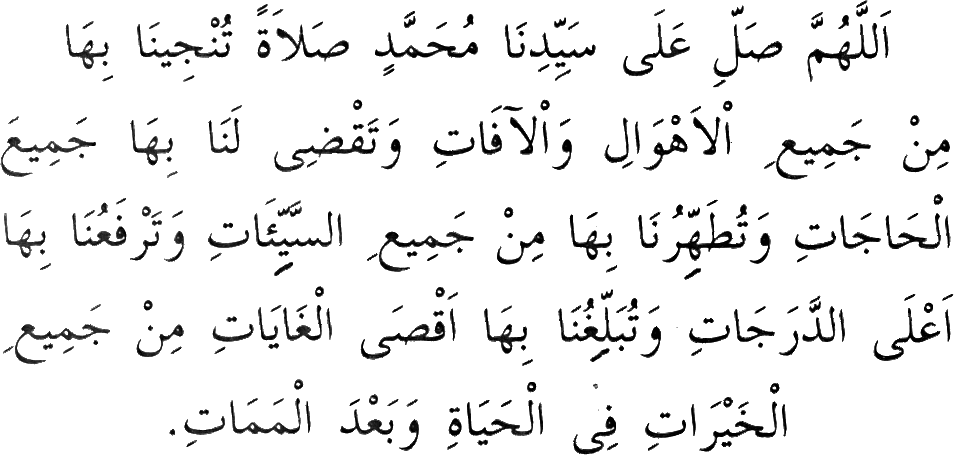 اَللَّهُمَّ صَلِّ عَلَى سَيِّدِنَا مُحَمَّدٍ صَلاَةً تُنْجِينَا بِهَا
مِنْ جَمِيعِ اْلاَهْوَالِ وَاْلآفَاتِ وَتَقْضِى لَنَا بِهَا جَمِيعَ
الْحَاجَاتِ وَتُطَهِّرُنَا بِهَا مِنْ جَمِيعِ السَّيِّئَاتِ وَتَرْفَعُنَا بِهَا
اَعْلَى الدَّرَجَاتِ وَتُبَلِّغُنَا بِهَا اَقْصَى الْغَايَاتِ مِنْ جَمِيعِ
الْخَيْرَاتِ فِى الْحَيَاةِ وَبَعْدَ الْمَمَاتِ.